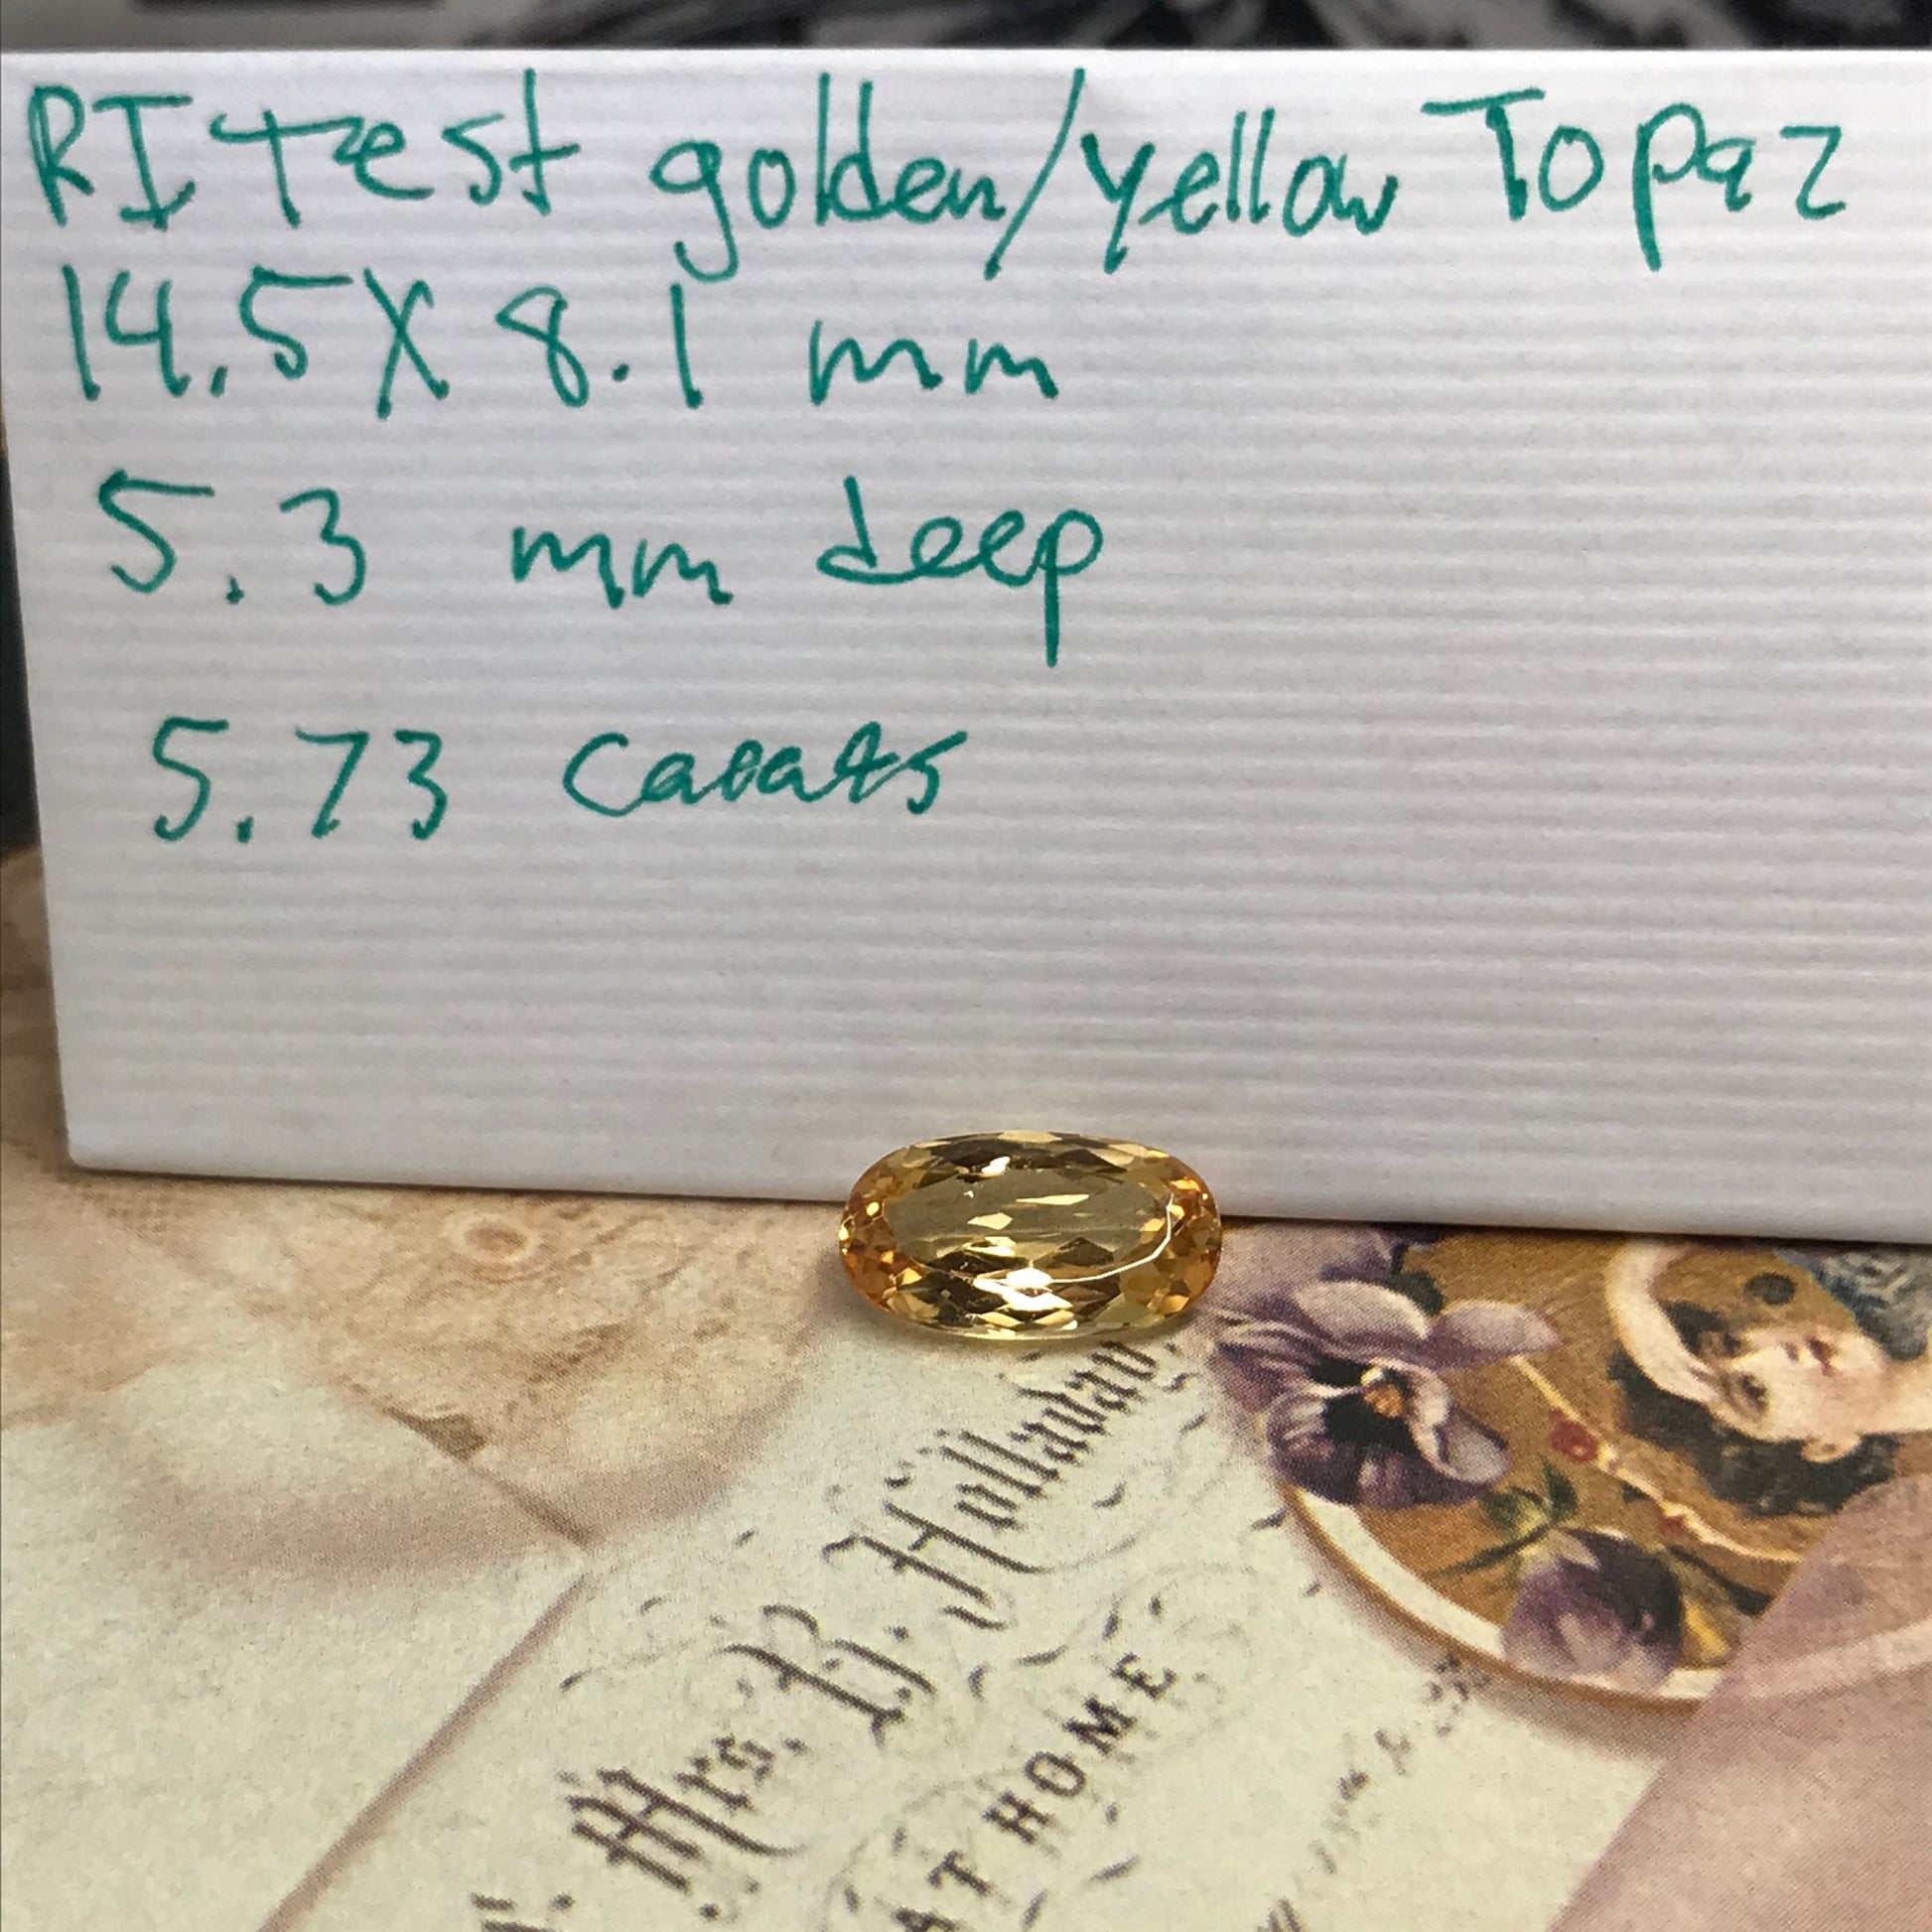 RI test golden/yellow Topaz
14.5 X 8.1 mm
5.3 mm deep
5.73 carats
Mrs. B. Hollaway.
AT HOME